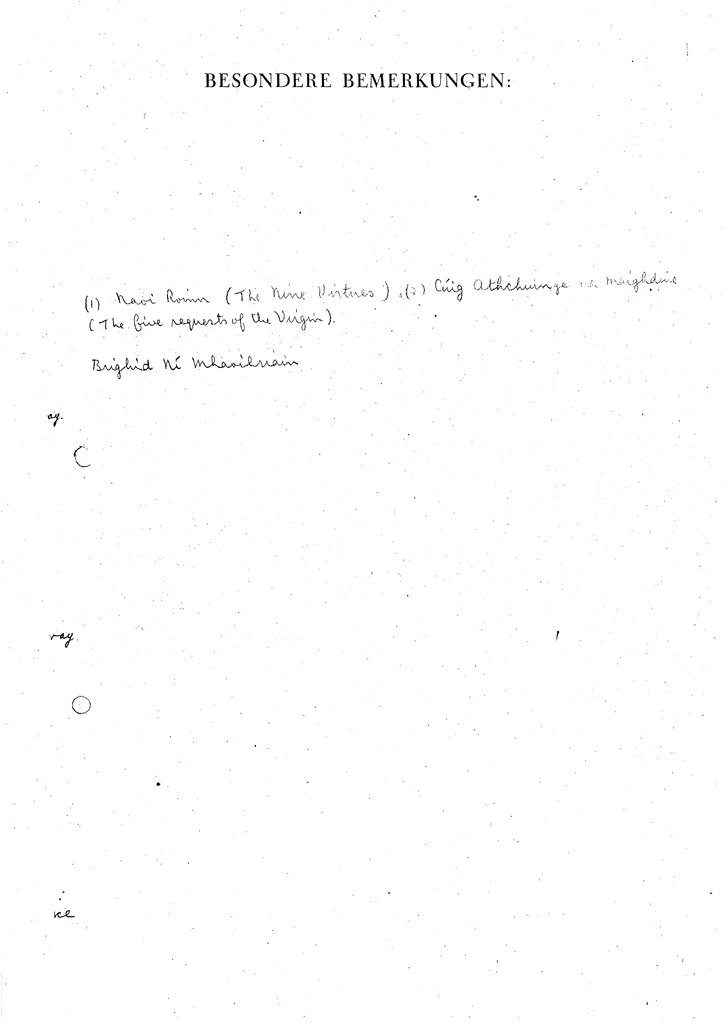 BESONDERE BEMERKUNGEN:
(1) Naoi Roinn (The Nine Virtues), (2) Cúig Athchuinge na Maighdine
(The five requests of the Virgin).
Brighid Ní Mhaoilriain
ay.
ray.
ice